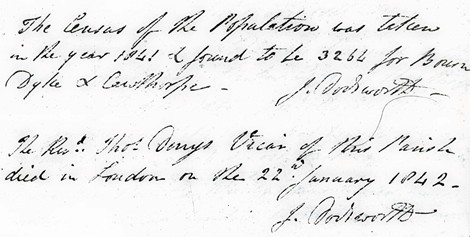 The Census of the Population was taken
in the year 1841 & found to be 3264 for Bourn
Dyke & Cawthorpe - J. Dodsworth -
The Revd. Thos. Denys Vicar of this Parish
died in London on the 22nd January 1842 -
J. Dodsworth